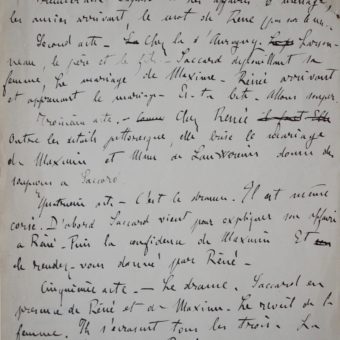 les misères arrivent, le mot de René
Second acte - Chez la d'Aurigny. Larson-
neau, le père et le fils - Saccard dépouillant sa
femme, le mariage de Maxime. - Réné arrivant
et apprenant le mariage - Es-tu bête - Allons souper.
Troisième acte. - Chez Renée
Outre les détails pittoresques, elle brise le mariage
de Maxime et Mme de Lauwerens donne des
soupçons à Saccard
Quatrième acte - C'est le drame. Il est même
corsé. D'abord Saccard vient pour expliquer son affaire
à Réné - Puis la confidence de Maxime Et
le rendez-vous donné par Réné -
Cinquième acte - Le drame. Saccard en
présence de Réné et de Maxime. Le réveil de la
femme. Ils s'écrasent tous les trois - La